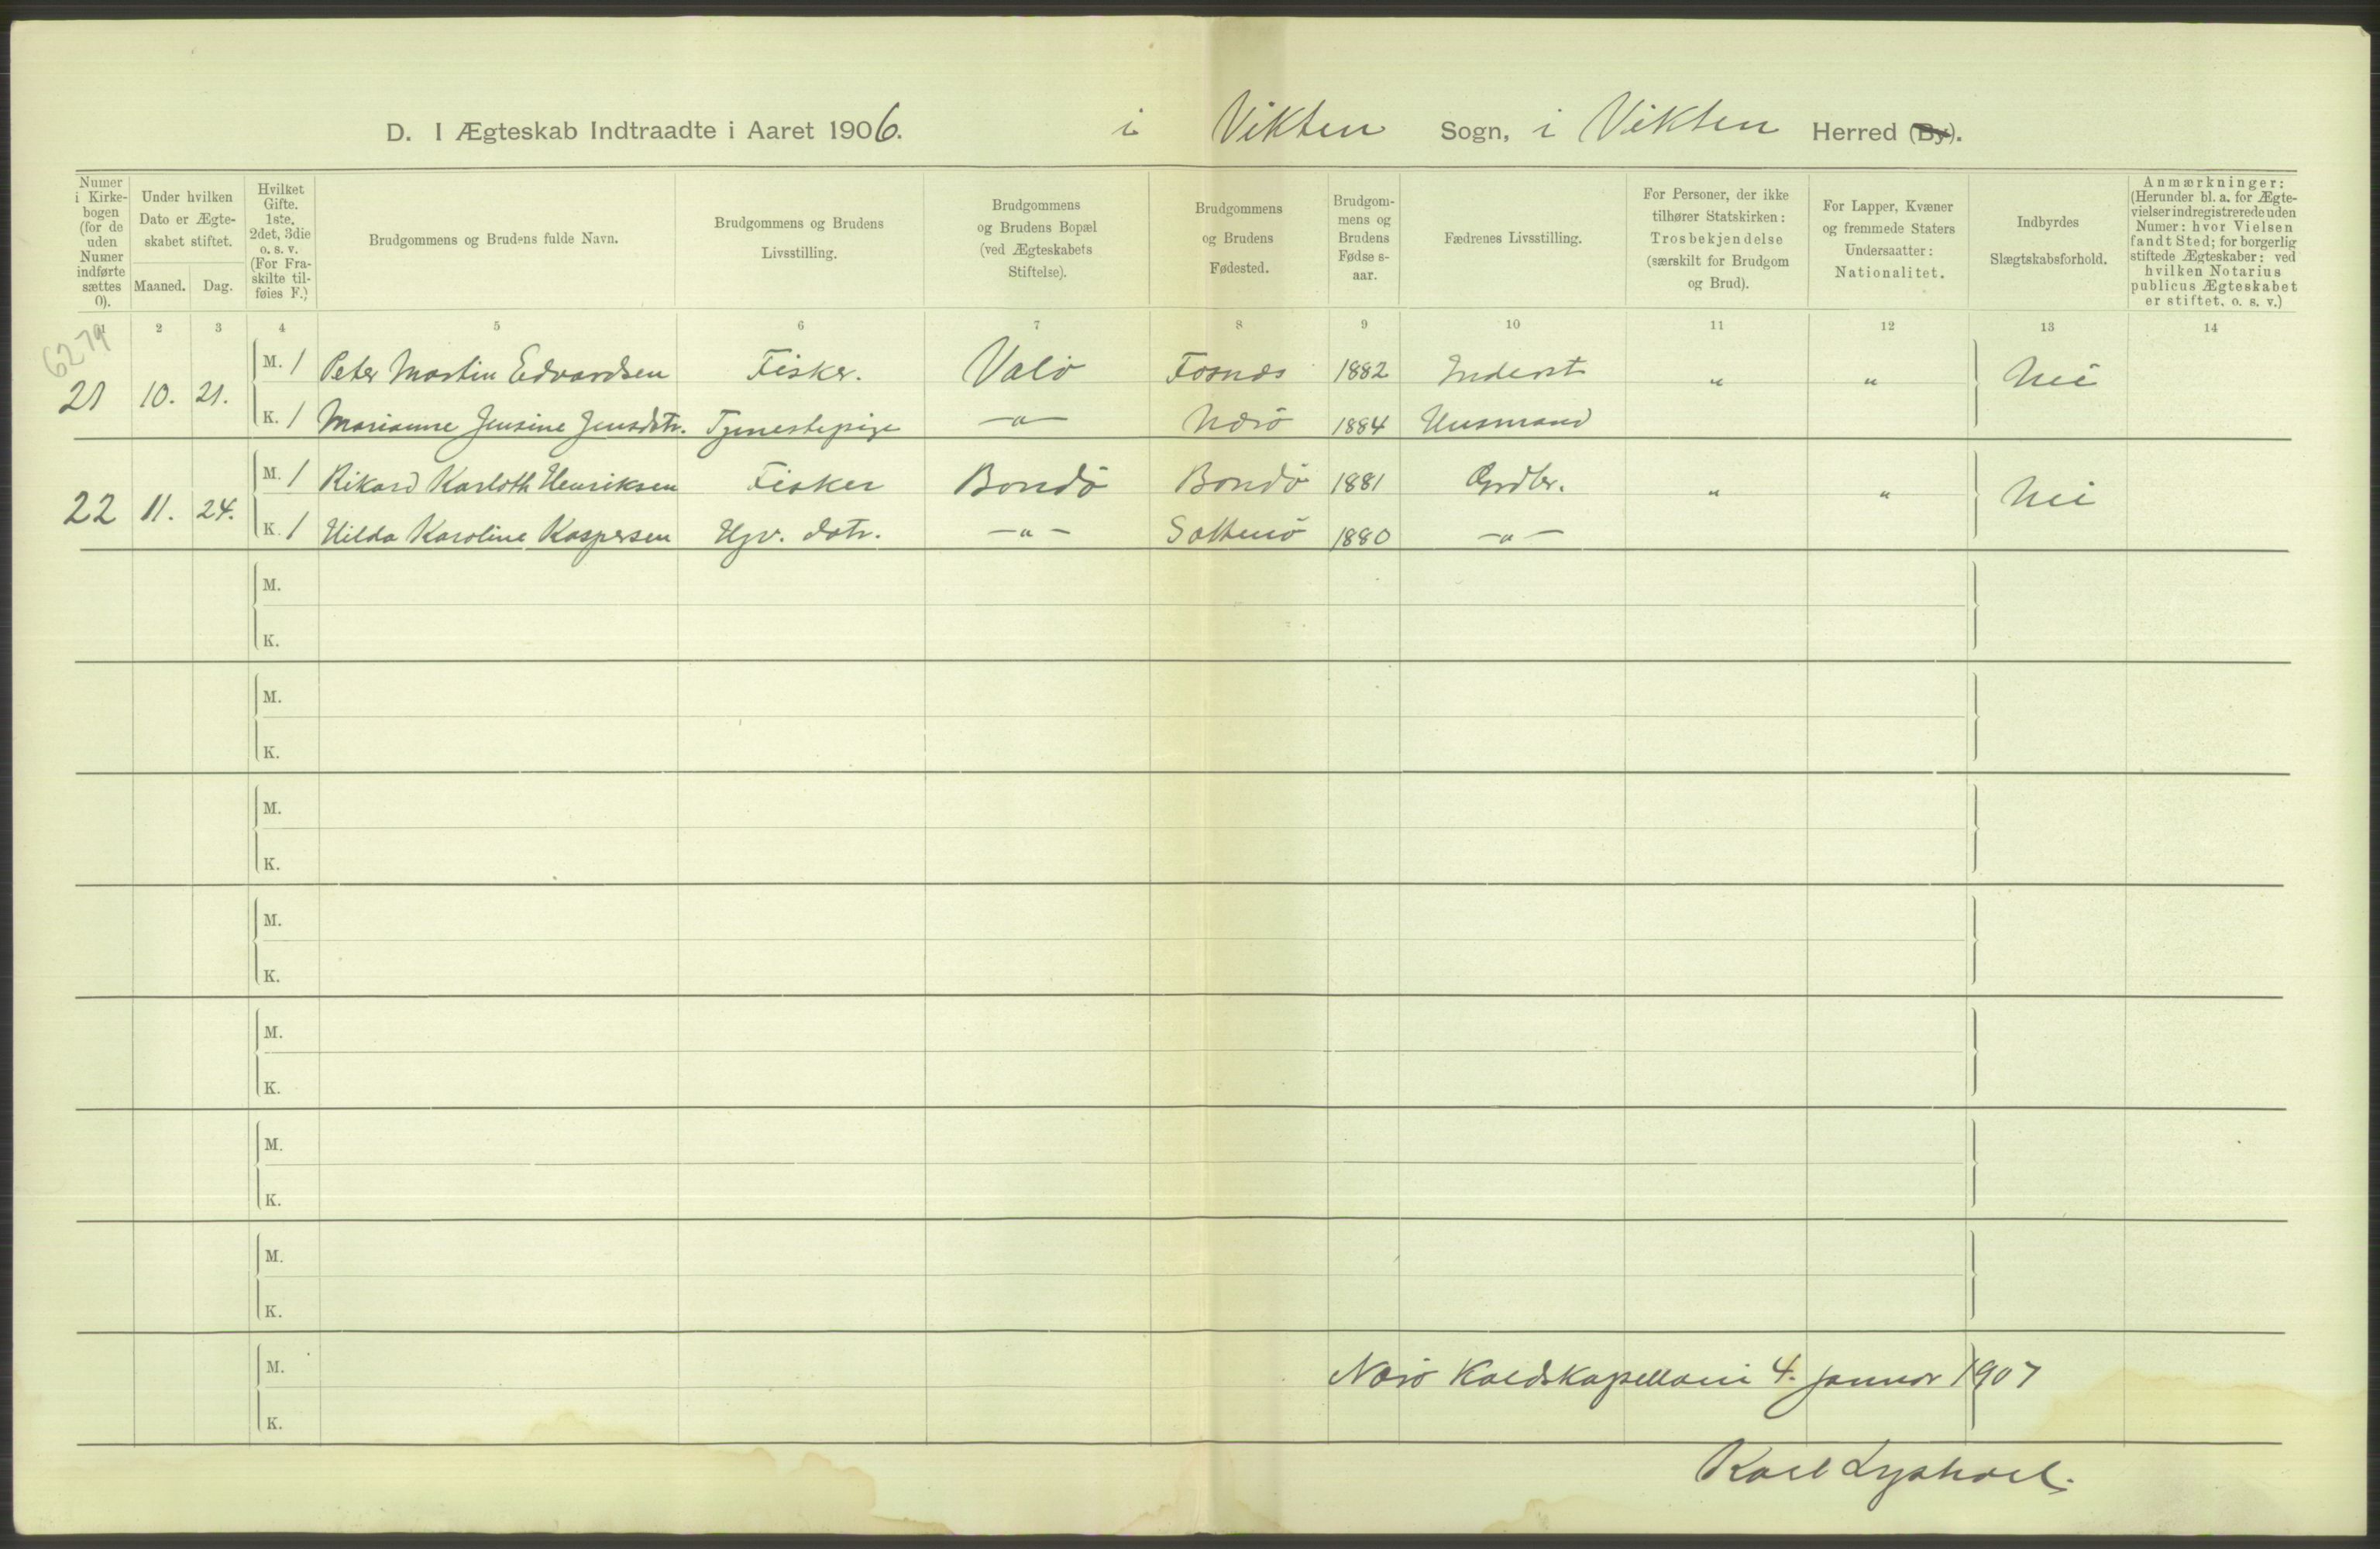 D. I Ægteskab Indtraadte i Aaret 1906. i Vikten Sogn, i Vikten Herred (By).
Numer i Kirkebogen (for de uden Numer indførte sættes 0).
Under hvilken Dato er Ægteskabet stiftet.
Maaned. Dag.
Hvilket Gifte. 1ste, 2det, 3die o. s. v. (For Fraskilte tilføies F.)
Brudgommens og Brudens fulde Navn.
Brudgommens og Brudens Livsstilling.
Brudgommens og Brudens Bopæl (ved Ægteskabets Stiftelse).
Brudgommens og Brudens Fødested.
Brudgommens og Brudens Fødselsaar.
Fædrenes Livsstilling.
For Personer, der ikke tilhører Statskirken: Trosbekjendelse (særskilt for Brudgom og Brud).
For Lapper, Kvæner og fremmede Staters Undersaatter: Nationalitet.
Indbyrdes Slægtskabsforhold.
Anmærkninger: (Herunder bl. a. for Ægtevielser indregistrerede uden Numer: hvor Vielsen fandt Sted; for borgerlig stiftede Ægteskaber: ved hvilken Notarius publicus Ægteskabet er stiftet. o. s. v.)
1 2 3 4 5 6 7 8 9 10 11 12 13 14
6279
21 10. 21. M. 1 Peter Martin Edvardsen Fisker. Valø Fosnæs 1882 Inderst " " Nei
K. 1 Marianne Jensine Jensdtr. Tjenestepige -"- Nærø 1884 Husmand
22 11. 24. M. 1 Rikard Karloth Henriksen Fisker Bondø Bondø 1881 Grdbr. " " Nei
K. 1 Hilda Karoline Kaspersen Hjv. datr. -"- 1880 -"-
M.
K.
M.
K.
M.
K.
M.
K.
M.
K.
M.
K.
M.
K.
M. Nærø Kaldskapellani 4. januar 1907
K.
Karl Lyshoel.